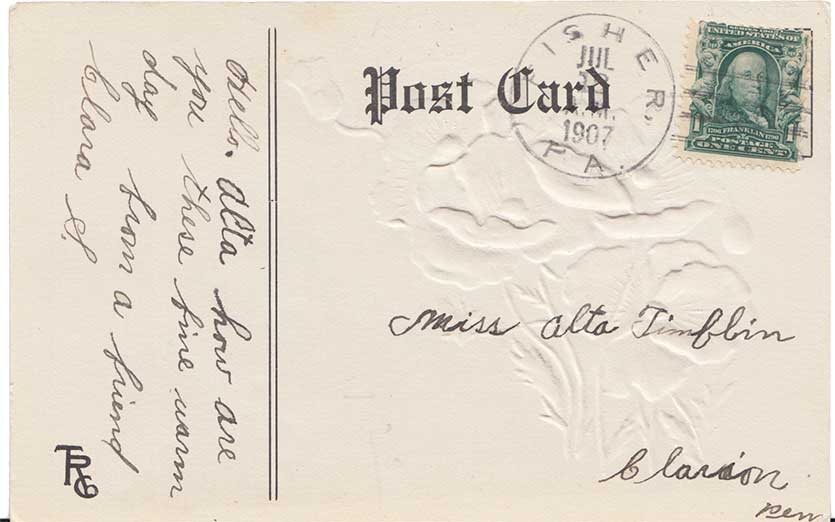 Hello. Alta how are
you these fine warm
day from a friend
Clara S.
TRC
Post Card
FISHER,
JUL
1907
PA.
SERIES 1902
UNITED STATES OF
AMERICA
1 1706 FRANKLIN 1790 1
POSTAGE
ONE CENT
Miss Alta Timblin
Clarion
Pen